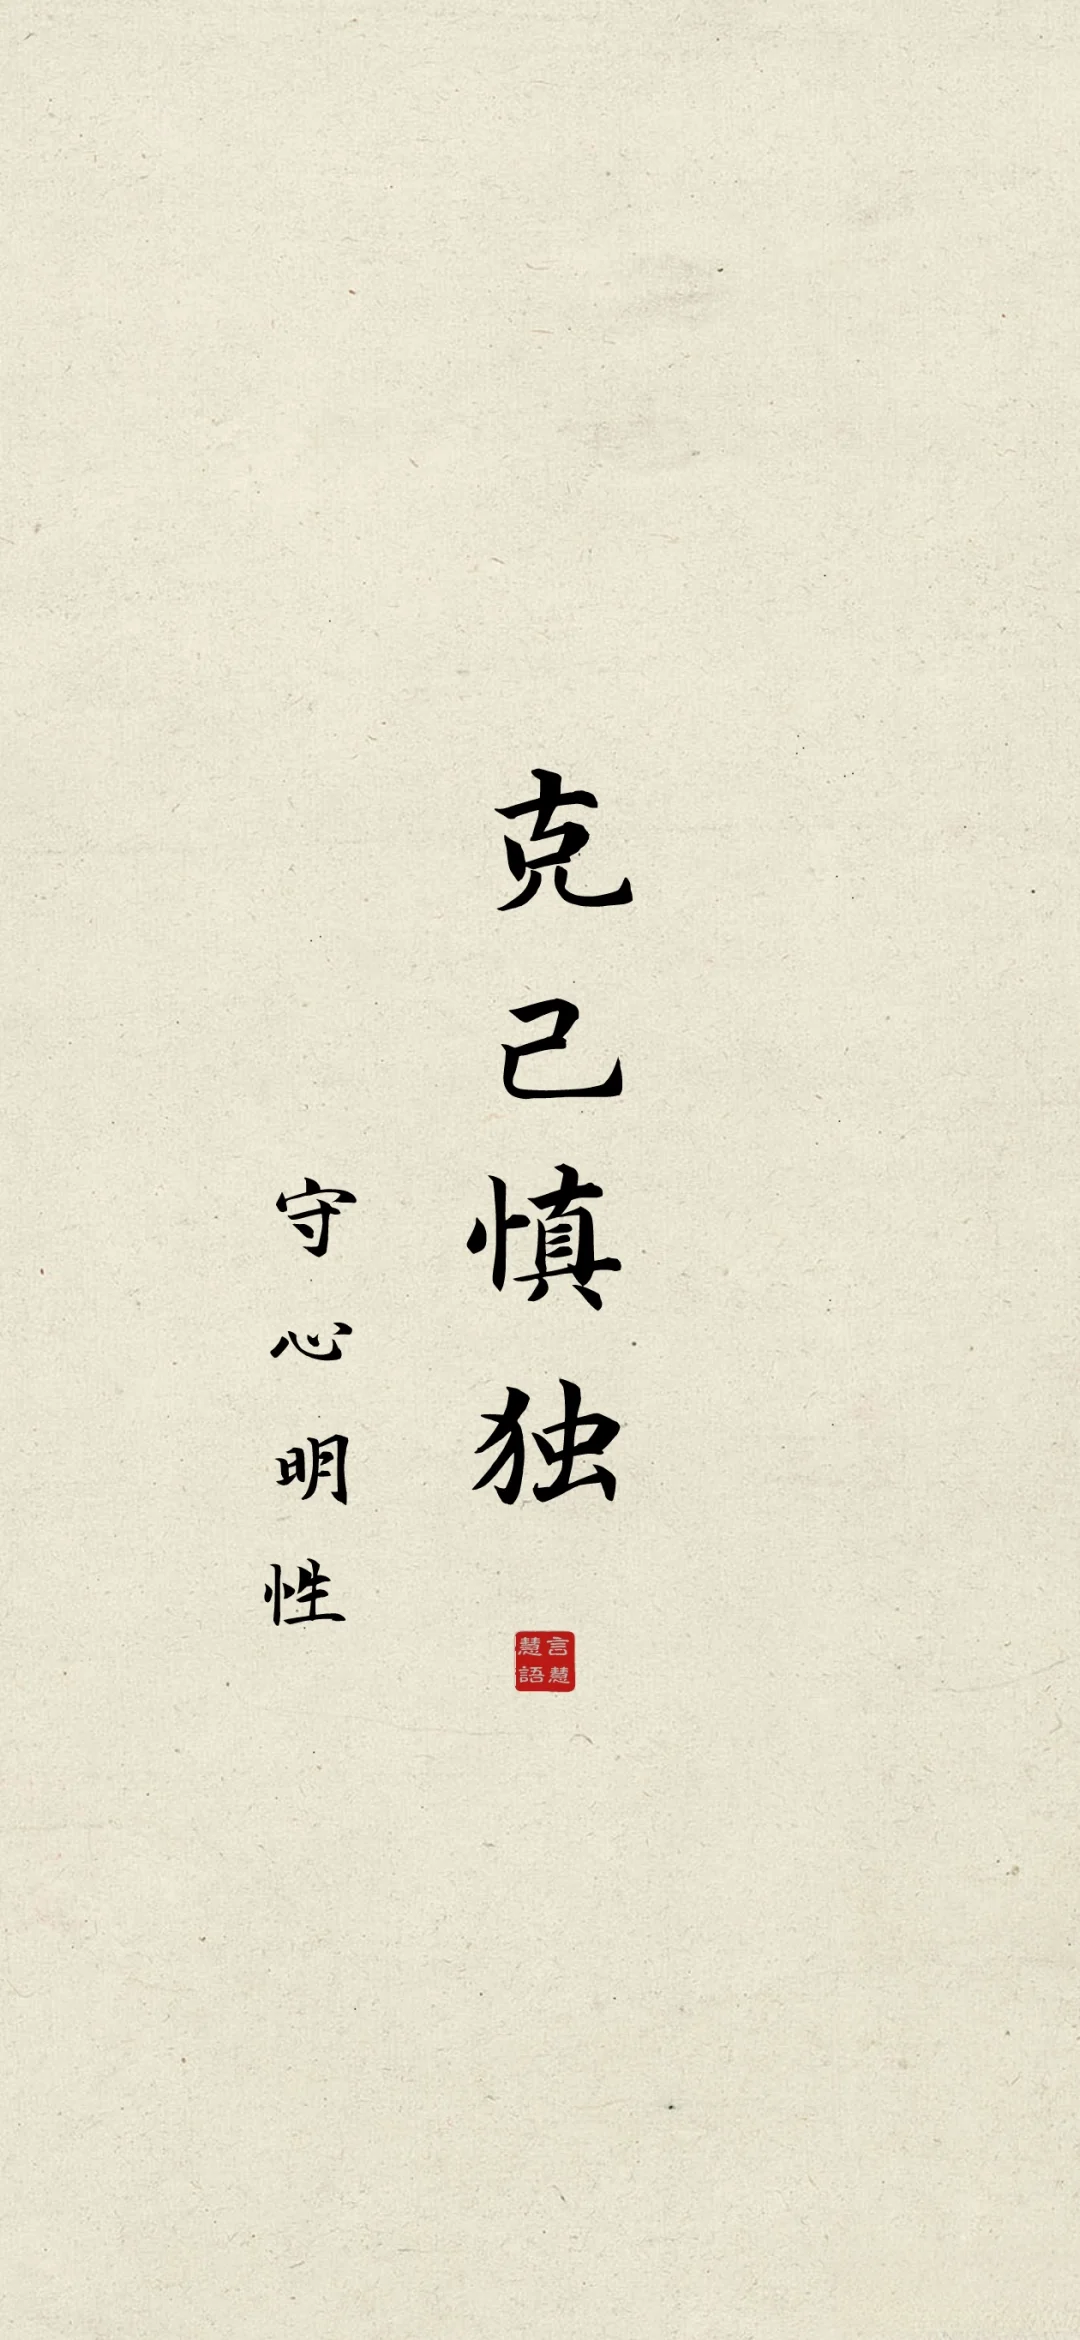 克己慎独
守心明性
言慧慧語